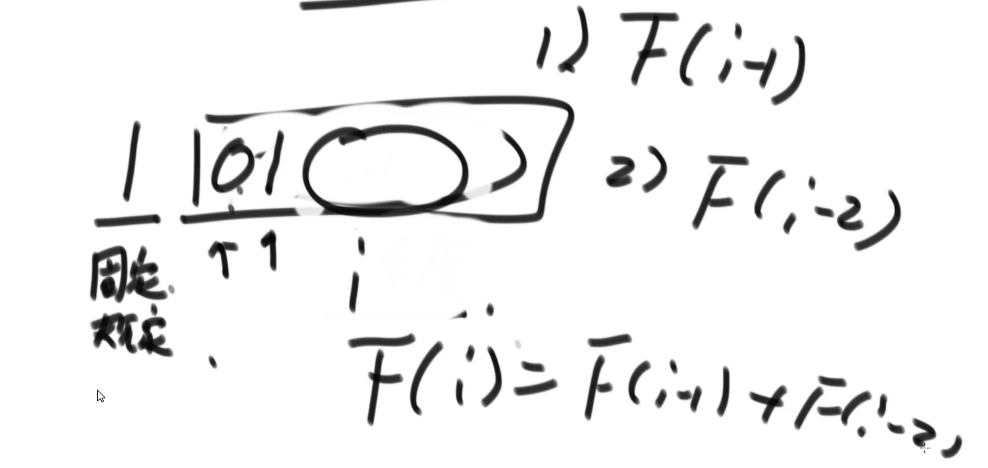 1) F(i-1)
1 101
2) F(i-2)
固定
规定
↑ ↑ i
F(i)=F(i-1)+F(i-2)